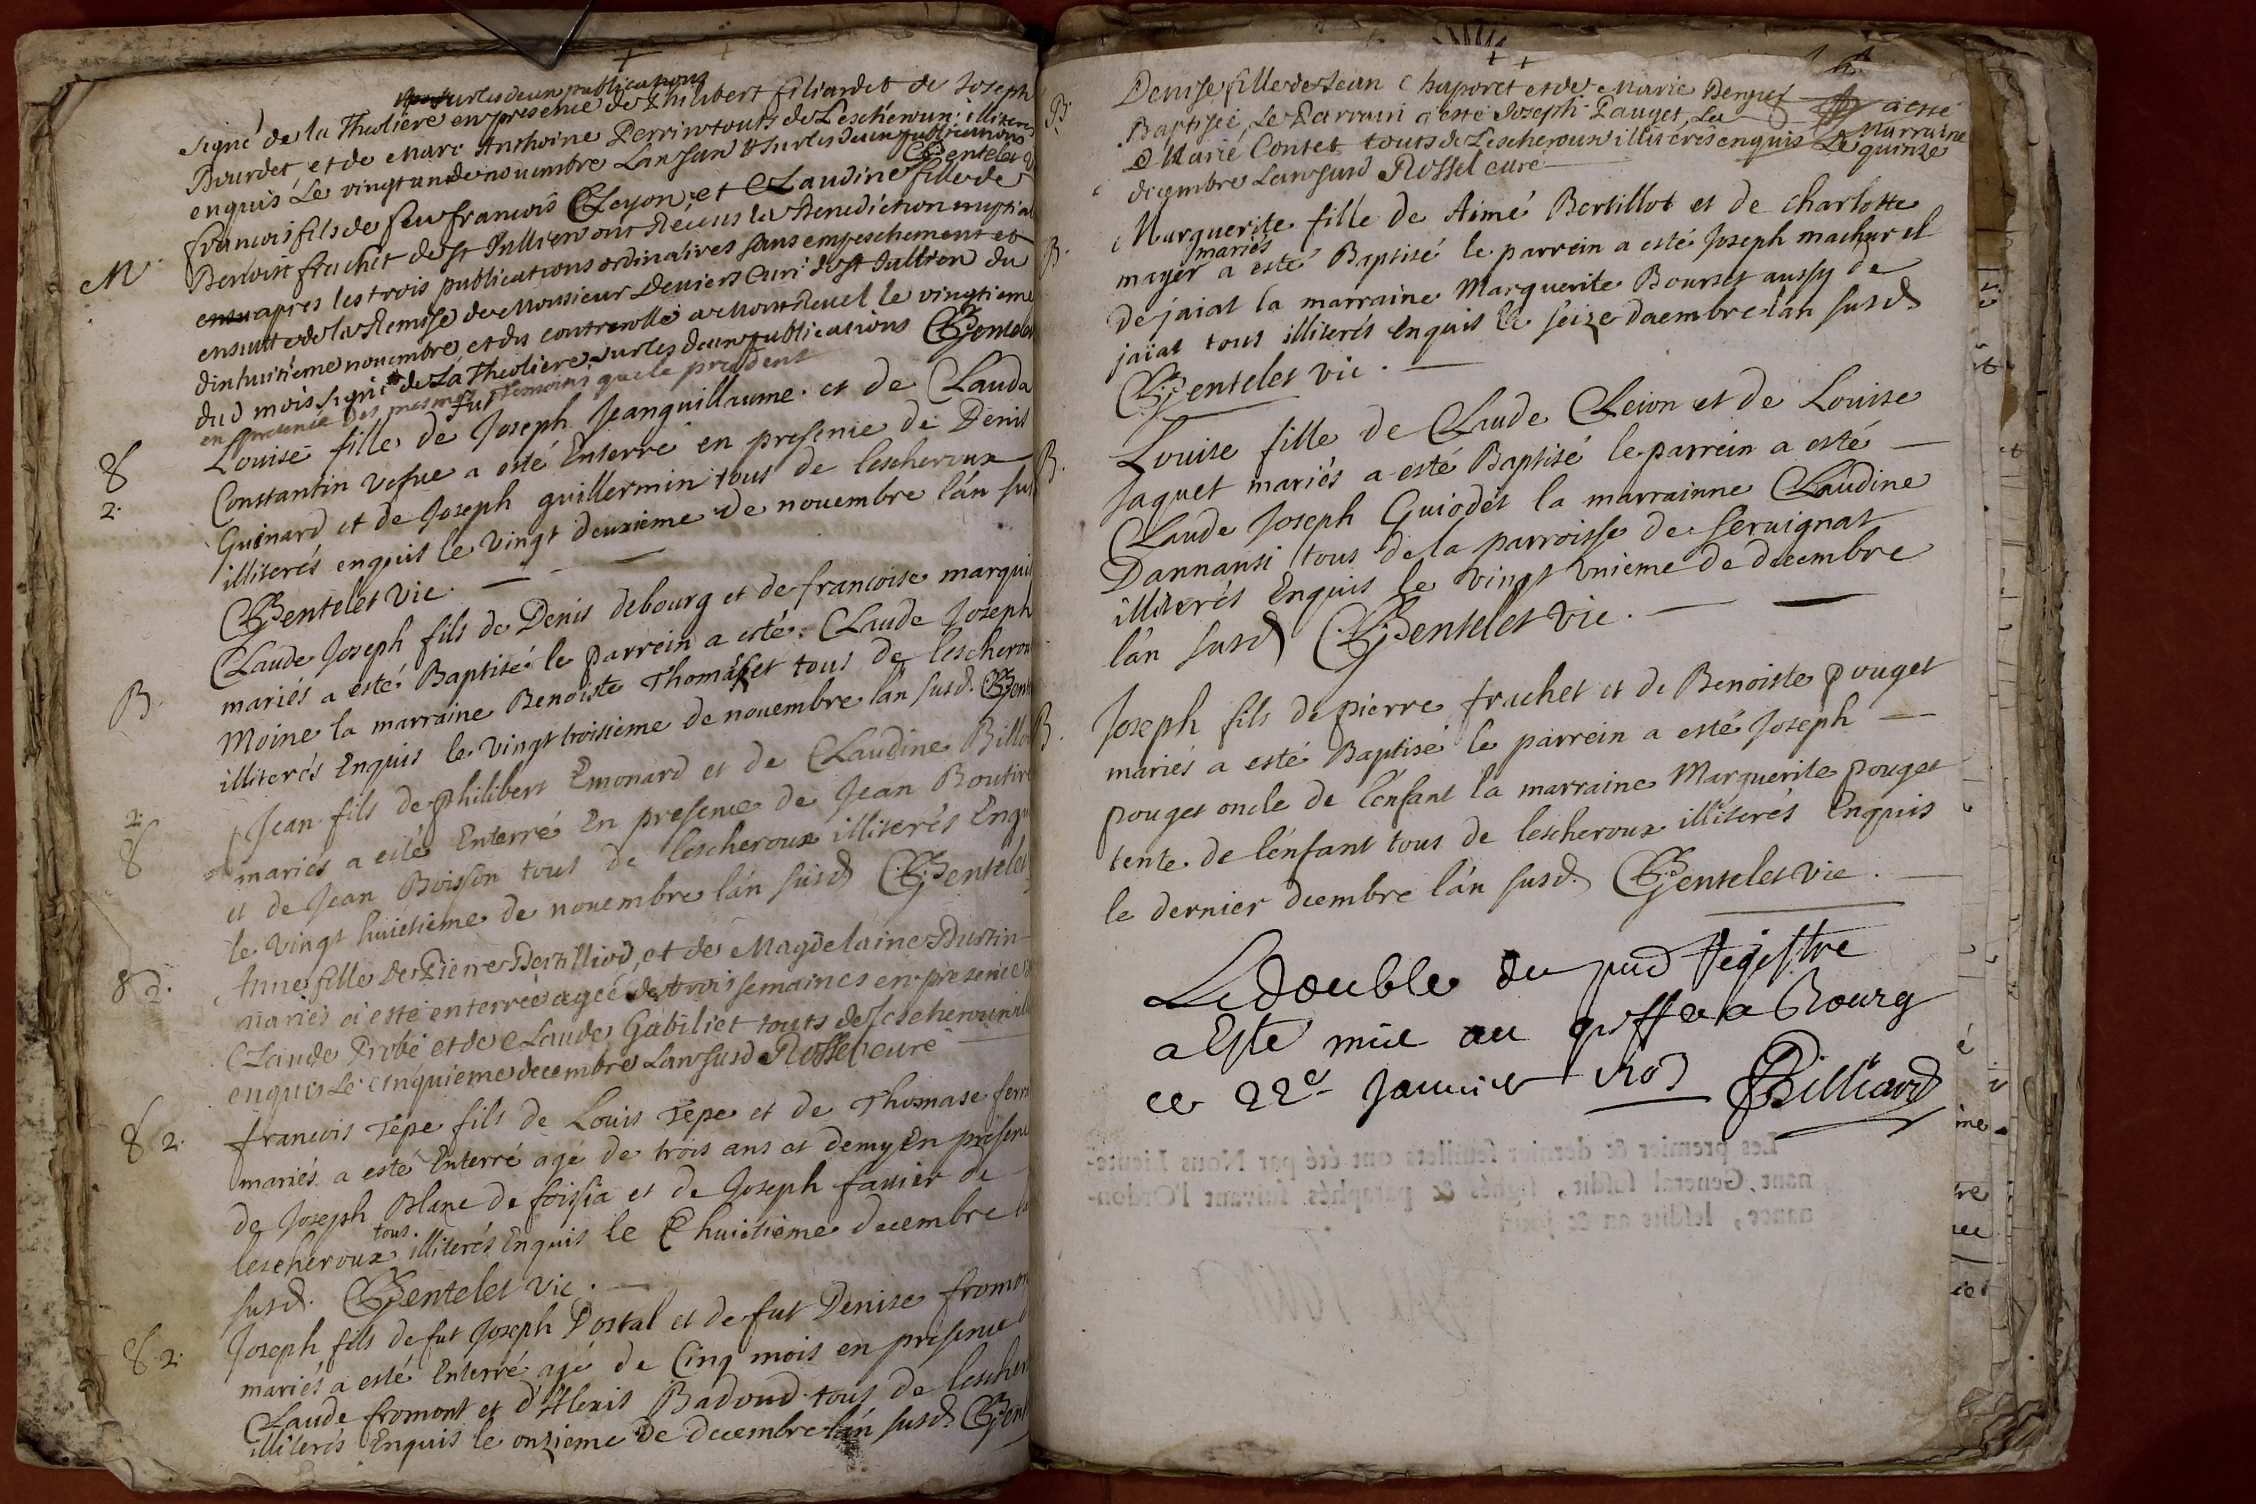 signé de la Theolière en presence de Philibert filiardet de Joseph
Bourdet, et de Marc Anthoine Perrin touts de Leschéroux illiterés
enquis Le vingt un de nouembre Lan susd & sur les deux publications
Gentelet
M
francois fils de feu francois Cleyon et Claudine fille de
Benoist frachet de St Jullien ont Récus la Benediction nuptial
apres les trois publications ordinaires sans empeschement et
ensuitte de la Remise de Monsieur Deniers Curé de St Jullien du
dixhuitième nouembre et du controolle a Montreuel le vingtieme
dud mois signé de La Theolière sur les deux publications Gentelet
en presence des mesmes temoins que le precedent
8
2.
Louise fille de fut Joseph Jeanguillaume et de Clauda
Constantin vefue a esté Enterré en presence de Denis
Guinard et de Joseph guillermin tous de lescheroux
illiterés enquis le vingt deuxieme de nouembre l'an sus
Gentelet vic.
B.
Claude Joseph fils de Denis debourg et de francoise marquis
mariés a esté Baptisé le parrein a esté Claude Joseph
Moine la marraine Benoiste Thomasset tous de lescheroux
illiterés Enquis le vingt troisieme de nouembre l'an susd. Gent
2.
8
Jean fils de philibert Emonard et de Claudine Billo
mariés a esté Enterré En presence de Jean Boutir
et de Jean Boisson tous de lescheroux illiterés Enqu
le vingt huictieme de nouembre l'an susd Gentelet
8 2.
Anne fille de Pierre Bertilliod, et de Magdelaine Burtin
mariés a esté enterrée agée de trois semaines en presence
Claude Probé et de Claude Gabiliet touts de Lescheroux
enquis Le cinquieme decembre Lan susd Rossel curé
8 2.
francois Tépe fils de Louis Tépe et de Thomase ferr
mariés a esté Enterré agé de trois ans et demy En presence
de Joseph Blanc de foissia et de Joseph fauier de
lescheroux tous illiterés Enquis le huictieme decembre
susd. Gentelet vic.
8. 2.
Joseph fils de fut Joseph Postal et de fut Denise fromon
mariés a esté Enterré agé de Cinq mois en presence
Claude fromont et d'Alexis Badoud tous de lescher
illiterés Enquis le onzieme de decembre l'an susd. Gent
B.
Denise fille de Jean Chaporet et de Marie Benguet a esté
Baptisée, Le Parrain a esté Joseph Pauget, La Marraine
Marie Contet touts de Lescheroux illiterés enquis Le quinze
decembre Lan susd Rossel curé
B.
Marguerite fille de Aimé Bertillot et de charlotte
mayer mariés a esté Baptisé le parrein a esté Joseph machurel
de jaiat la marraine Marguerite Bourset aussy de
jaiat tous illiterés Enquis le seize decembre l'an susd
Gentelet vic.
B.
Louise fille de Claude Cleion et de Louise
Jaquet mariés a esté Baptisé le parrein a esté
Claude Joseph Guiodet la marrainne Claudine
Dannansi tous de la parroisse de Seruignat
illiterés Enquis le vingt vnieme de decembre
l'an susd Gentelet vic.
B.
Joseph fils de pierre frachet et de Benoiste pouget
mariés a esté Baptisé le parrein a esté Joseph
pouget oncle de l'enfant la marraine Marguerite pouget
tente de l'enfant tous de lescheroux illiterés Enquis
le dernier decembre l'an susd. Gentelet vic.
Le double du pnd Registre
a Esté mis au greffe a Bourg
ce 22e Januier 1703 Billiard